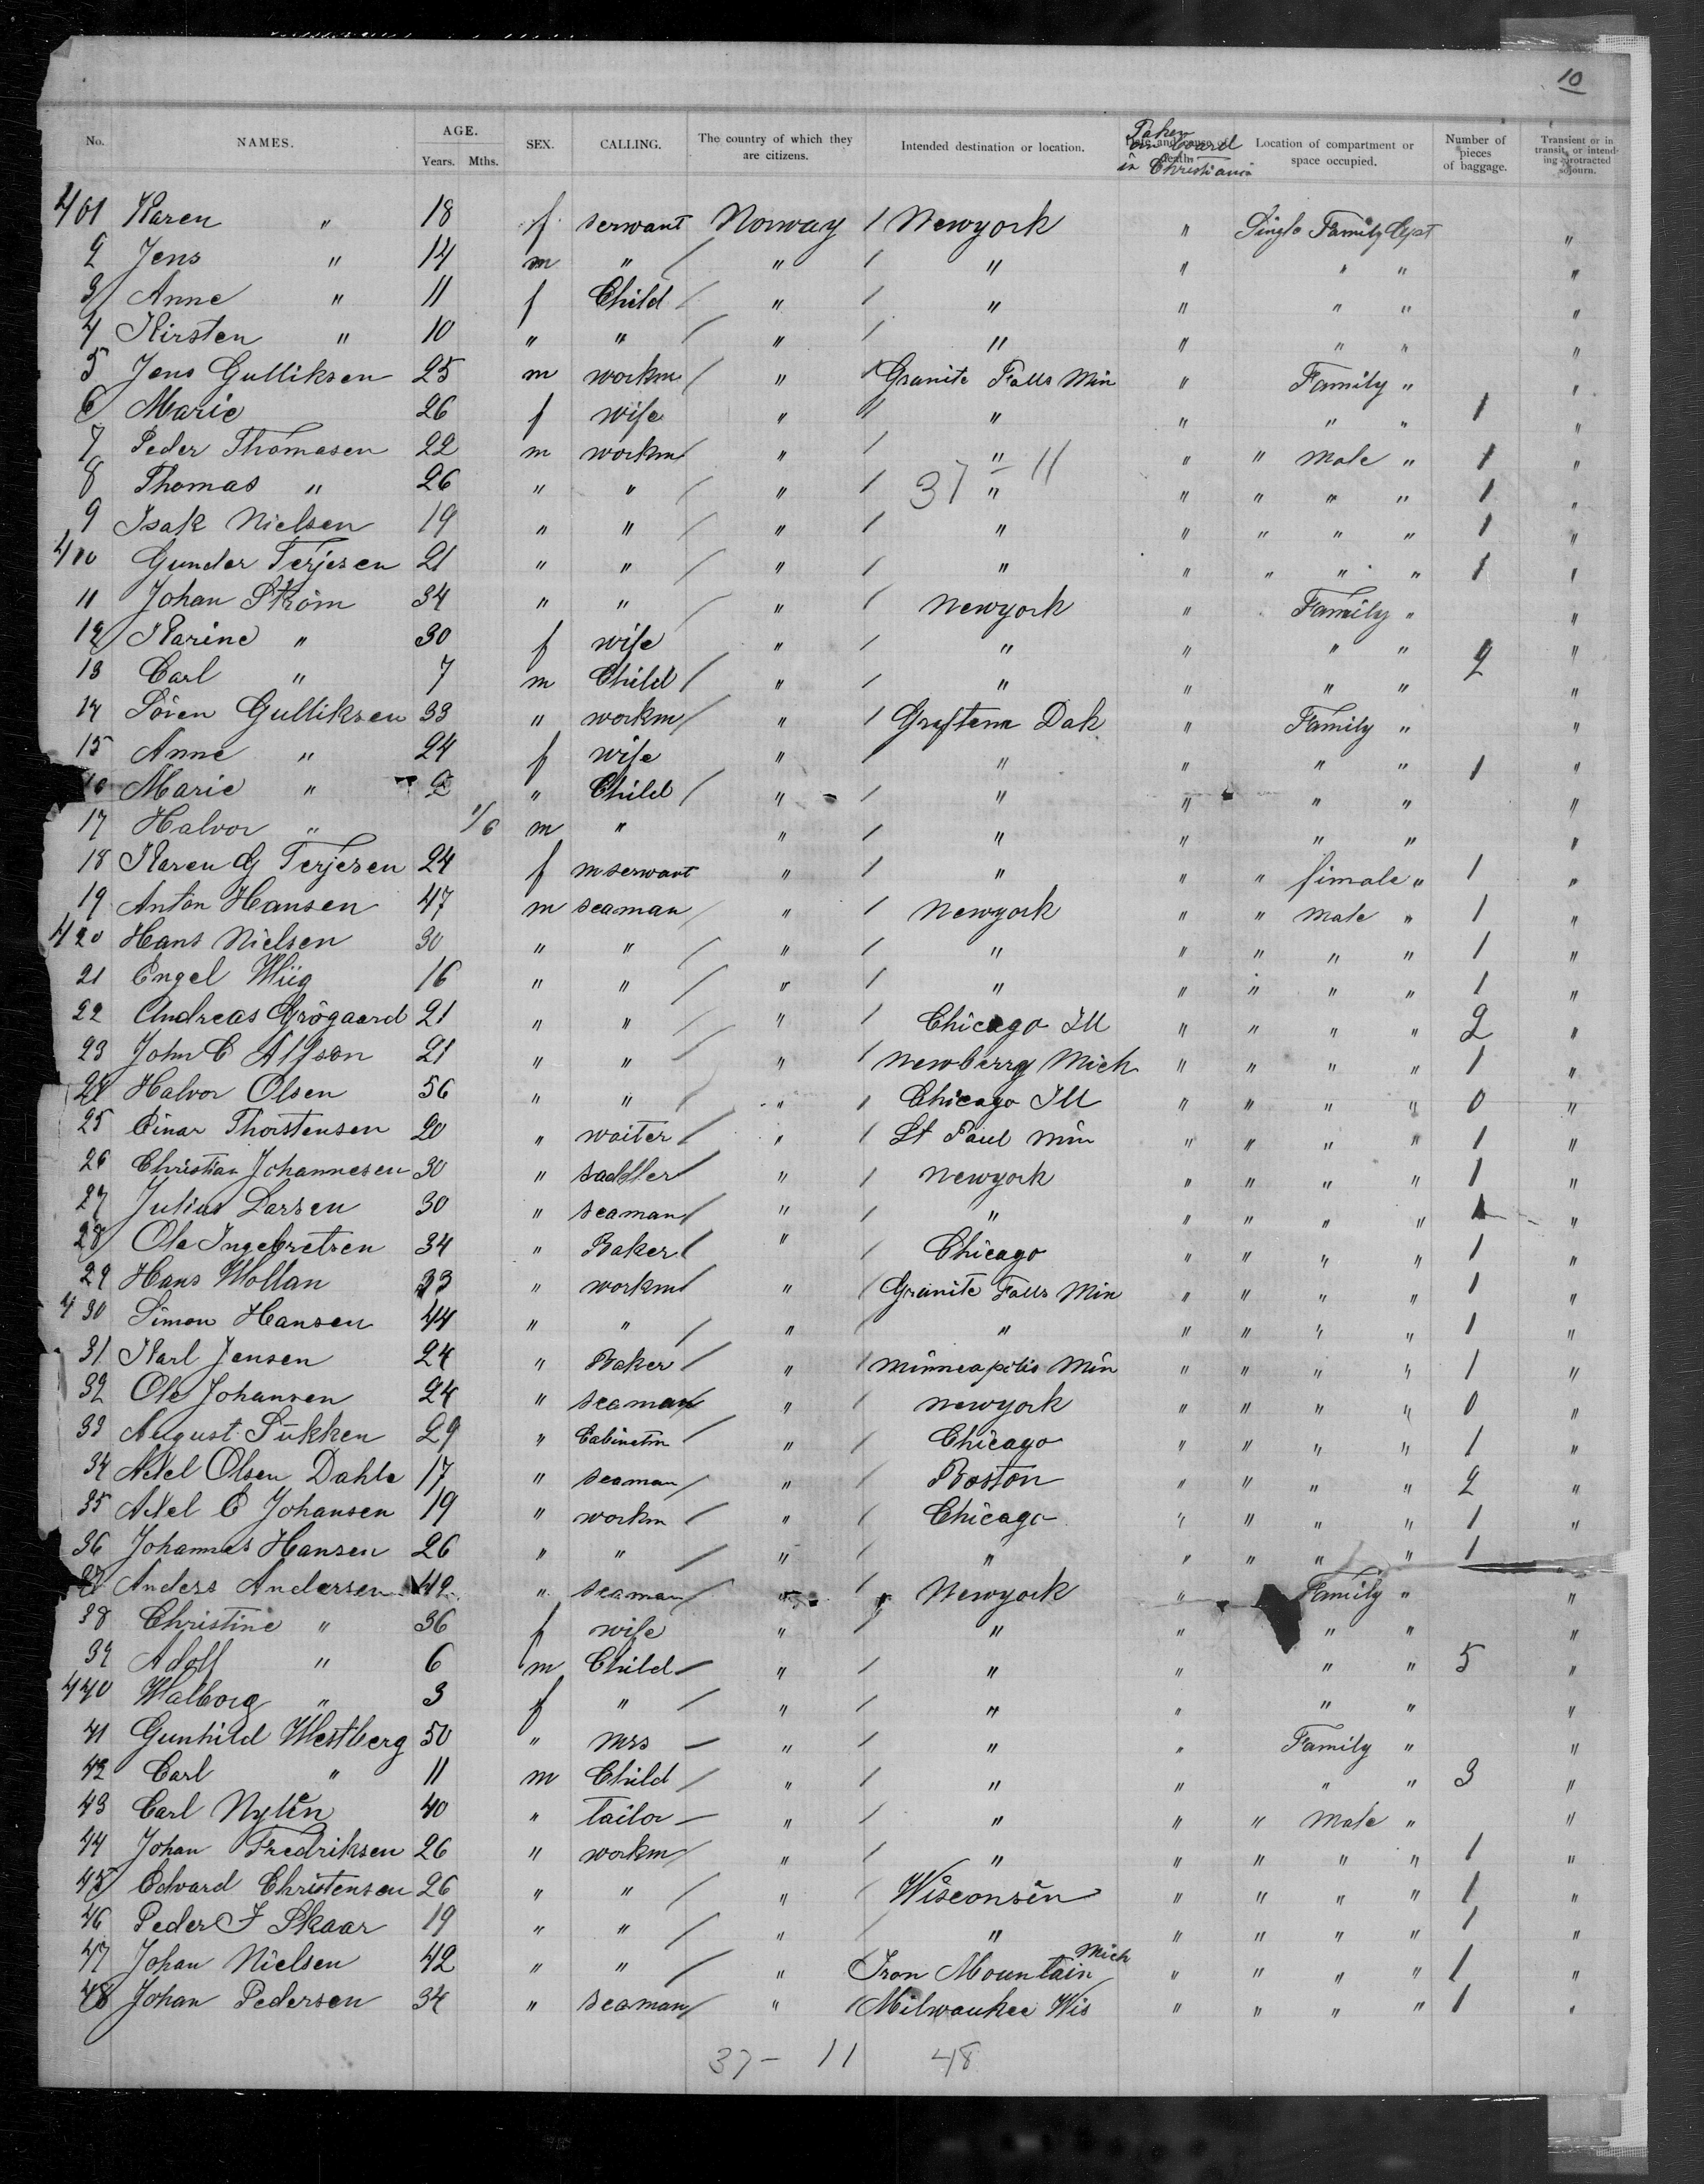 10
No. NAMES. AGE. Years. Mths. SEX. CALLING. The country of which they are citizens. Intended destination or location. Taken on board in Christiania Location of compartment or space occupied. Number of pieces of baggage. Transient or in transit, or intending protracted sojourn.
401 Karen " 18 f servant Norway / Newyork " Single Family Cpt "
2 Jens " 14 m " / " / " " " " "
3 Anne " 11 f Child / " / " " " " "
4 Kirsten " 10 " " / " / " " " " "
5 Jens Gulliksen 25 m workm / " / Granite Falls Min " Family " "
6 Marie 26 f wife " / " " " " 1 "
7 Peder Thomasen 22 m workm / " / " " " male " 1 "
37 - 11
8 Thomas " 26 " " / " / " " " " " 1 "
9 Isak Nielsen 19 " " / " / " " " " " 1 "
410 Gunder Terjesen 21 " " / " / " " " " " 1 "
11 Johan Ström 34 " " / " / Newyork " Family " "
12 Karine " 30 f wife " / " " " " 2 "
13 Carl " 7 m Child / " / " " " " "
14 Sören Gulliksen 33 " workm / " / Dak " Family " "
15 Anne " 24 f wife " / " " " " 1 "
16 Marie " 2 " Child / " / " " " " "
17 Halvor " 1/6 m " " / " " " " "
18 Karen G Terjesen 24 f servant " / " " " fimale " 1 "
19 Anton Hansen 47 m seaman / " / Newyork " " male " 1 "
420 Hans Nielsen 30 " " / " / " " " " " 1 "
21 Engel Wiig 16 " " / " / " " " " " 1 "
22 Andreas Grögaard 21 " " / " / Chicago Ill " " " " 2 "
23 John C Alfson 21 " " / " / Newberry Mich " " " " 1 "
24 Halvor Olsen 56 " " / " / Chicago Ill " " " " 0 "
25 Einar Thorstensen 20 " waiter / " / St Paul Min " " " " 1 "
26 Christian Johannesen 30 " saddler / " / Newyork " " " " 1 "
27 Julius Larsen 30 " seaman / " / " " " " " 1 "
28 Ole Ingebretsen 34 " Baker / " / Chicago " " " " 1 "
29 Hans Wollan 33 " workm / " / Granite Falls Min " " " " 1 "
430 Simon Hansen 44 " " / " / " " " " " 1 "
31 Karl Jensen 24 " Baker / " / Minneapolis Min " " " " 1 "
32 Ole Johansen 24 " seaman / " / newyork " " " " 0 "
33 August Sukken 29 " Cabinetm / " / Chicago " " " " 1 "
34 Axel Olsen Dahle 17 " seaman / " / Boston " " " " 2 "
35 Axel E Johansen 19 " workm / " / Chicago " " " " 1 "
36 Johannes Hansen 26 " " / " / " " " " " 1 "
37 Anders Andersen 42 " seaman / " / Newyork " Family " "
38 Christine " 36 f wife " / " " " " "
39 Adolf " 6 m Child / " / " " " " 5 "
440 Walborg " 3 f " / " / " " " " "
41 Gunhild Westberg 50 " Mrs / " / " " Family " "
42 Carl " 11 m Child / " / " " " " 3 "
43 Carl Nylén 40 " tailor / " / " " " male " "
44 Johan Fredriksen 26 " workm / " / " " " " " 1 "
45 Edvard Christensen 26 " " / " / Wisconsin " " " " 1 "
46 Peder J Skaar 19 " " / " / " " " " " 1 "
47 Johan Nielsen 42 " " / " Iron Mountain Mich " " " " 1 "
48 Johan Pedersen 34 " seaman / " / Milwaukee Wis " " " " 1 "
37 - 11 48